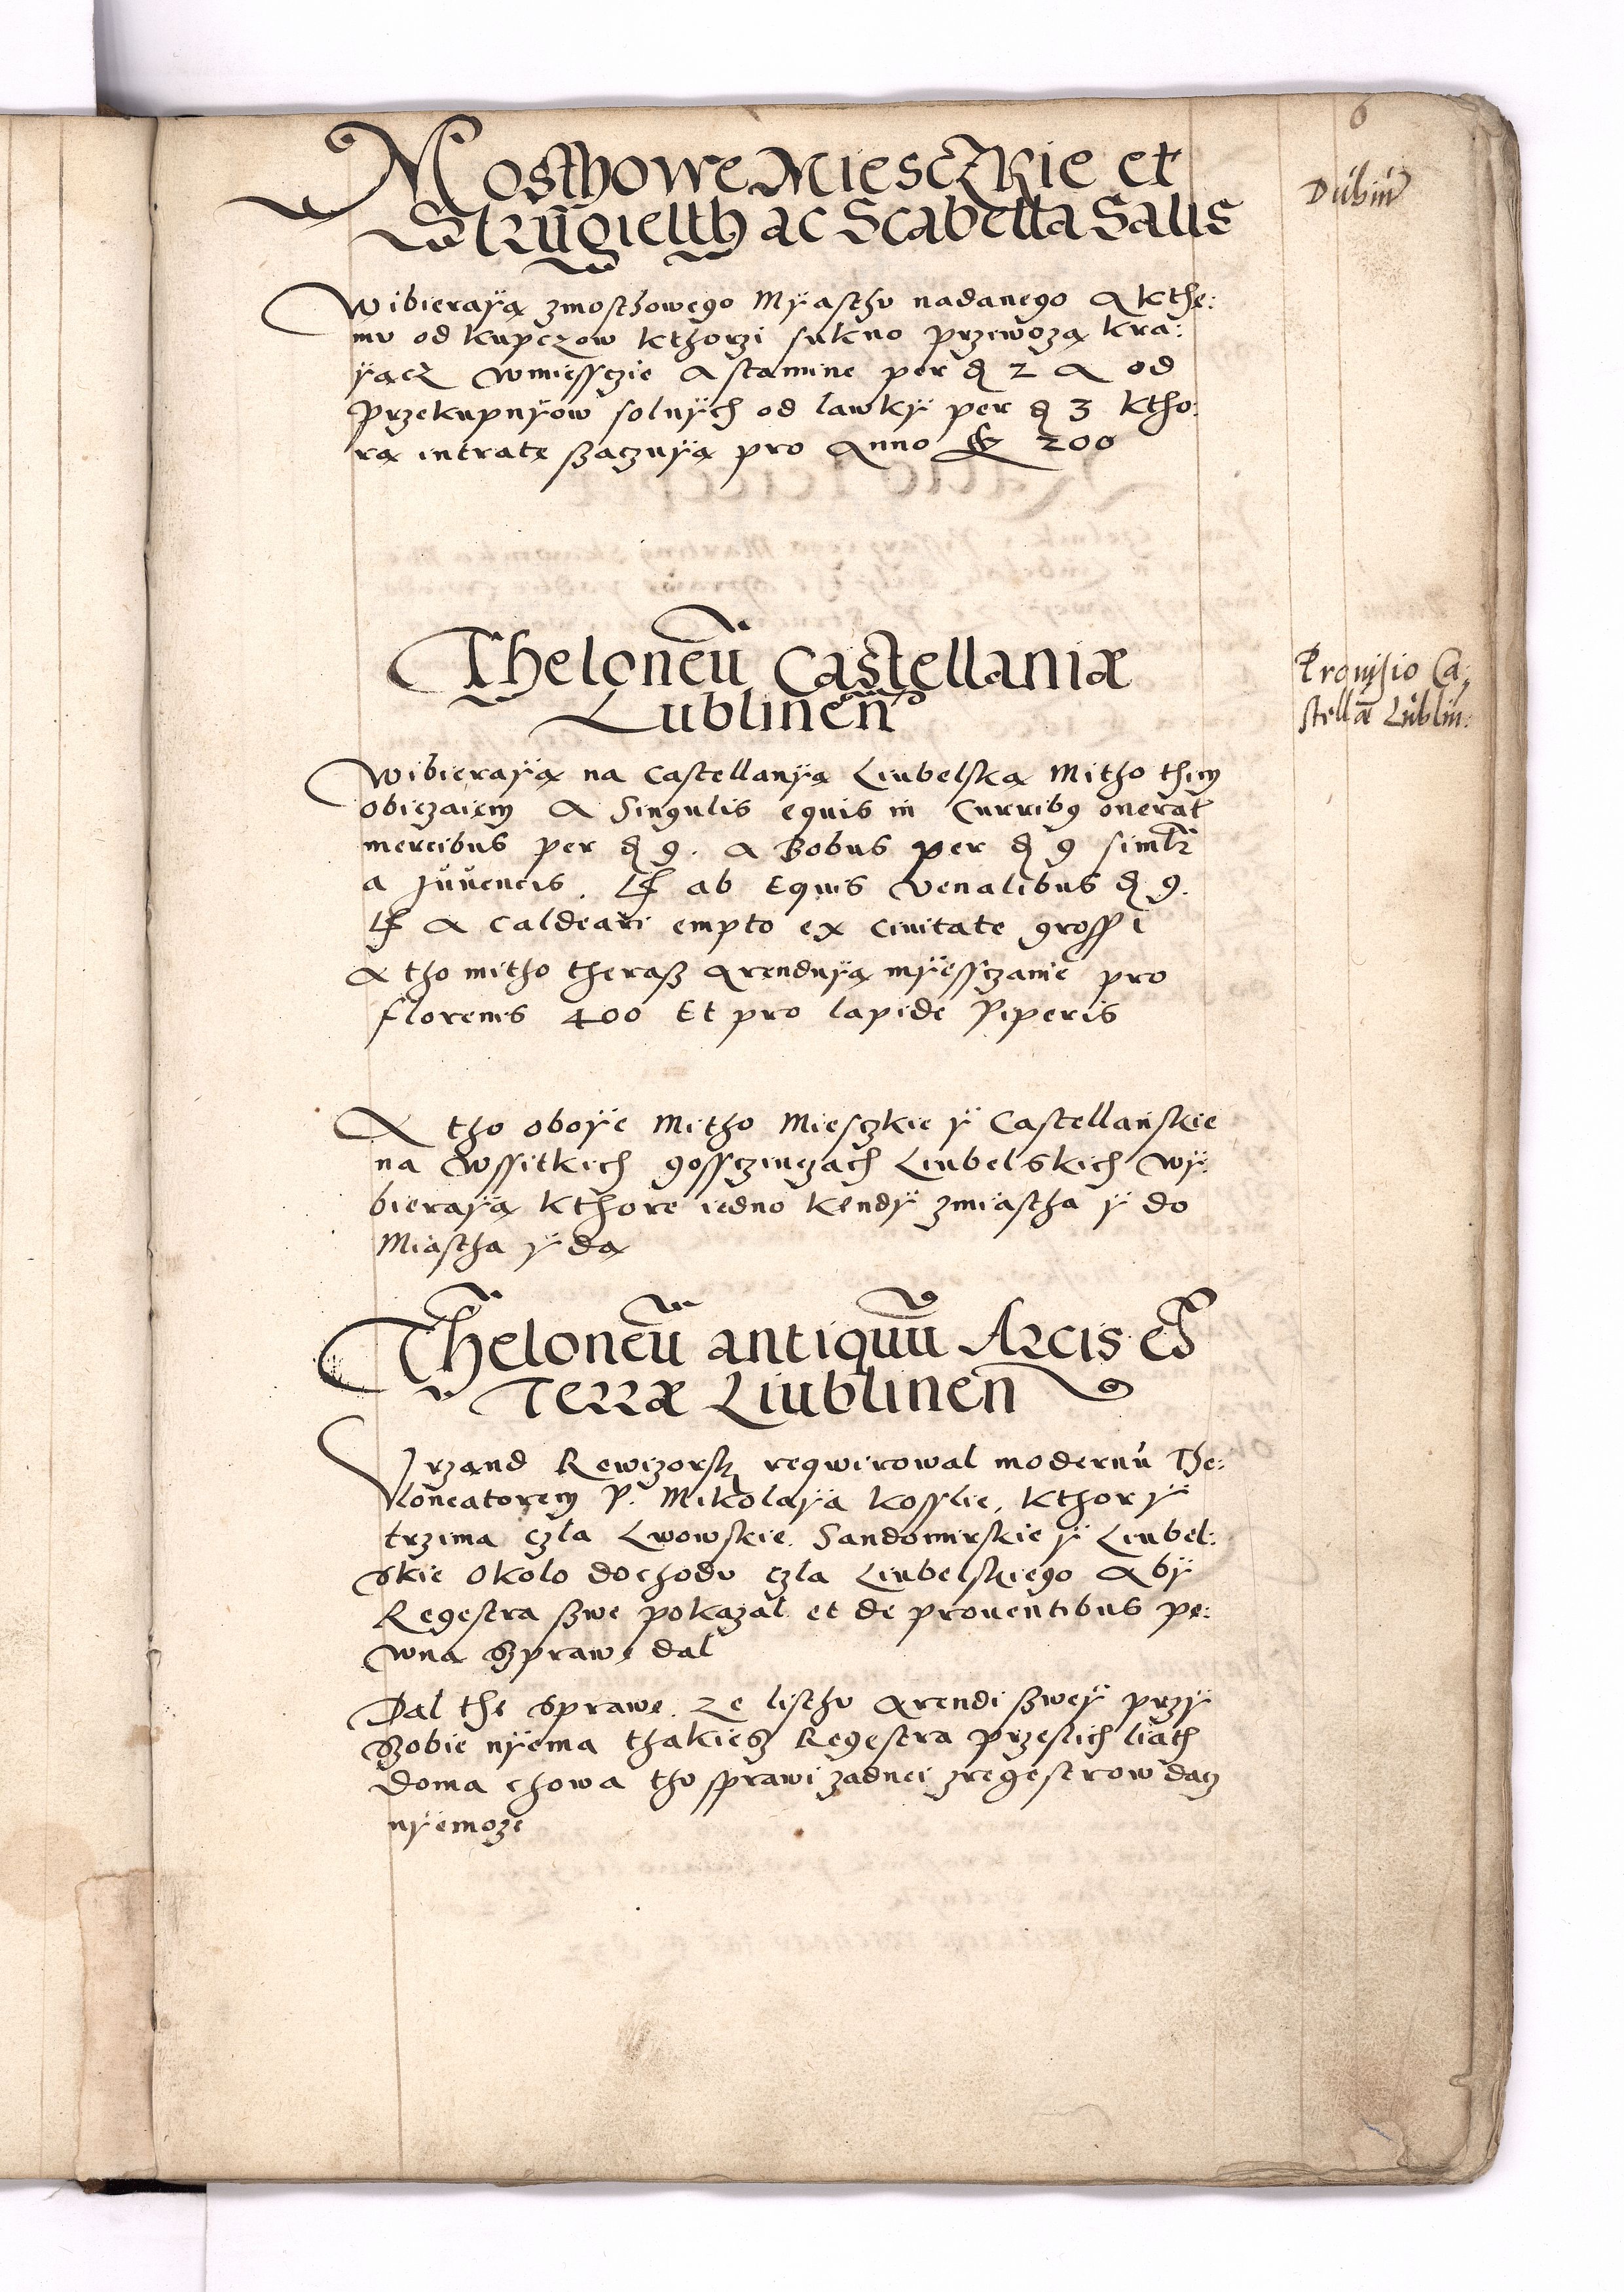 6
Mosthowe Miesczkie et
Strÿgielth ac Scabella Salis
Dubiu
Wibieraÿą zmosthowego Mÿasthu nadanego A kthe:
mu od kupczow kthorzi sukno przewożą kra:
ÿącz wmiessczie A stamine per d 2 A od
przekupnÿow solnÿch od lawkÿ per d 3 ktho:
rą intratę szaczuÿą pro Anno fl 200
Theloneū Castellaniæ
Lublineñ
Prouisio Ca,
stellæ Lublin:
Wibieraÿą na Castellanÿą Liubelską Mitho thim
obiczaiem A Singulis equis in Curribq onerat
mercibus per d 9. A Bobus per d 9 simlr
a Juuencis. It ab Equis venalibus d 9.
It A caldeari empto ex ciuitate gross i
A tho mitho therasz Arenduÿą mÿessczanie pro
florenis 400 Et pro lapide Piperis
A tho oboÿe Mitho Miesczkie ÿ Castellanskie
na wssitkich gossczinczach Liubelskich wÿ:
bieraÿą kthore iedno kendÿ zmiastha ÿ do
Miastha ÿdą
Theloneū antiquū Arcis et
Terræ Liublinen
Vrzand Rewizorsky reqwirowal modernū The:
loneatorem P. Mikolaÿa Kosslie, kthorÿ
trzima czla Lwowskie. Sandomirskie ÿ Liubel:
skie Okolo dochodu czla Liubelskiego Abÿ
Regestra szwe pokazal et de prouentibus pe:
wną szprawę dal
Dal the sprawe. Ze listhu Arendi szweÿ przÿ
szobie nÿema thakiesz Regestra przeslich liath
doma chowa tho sprawi zadnei zregestrow dacz
nÿemoze